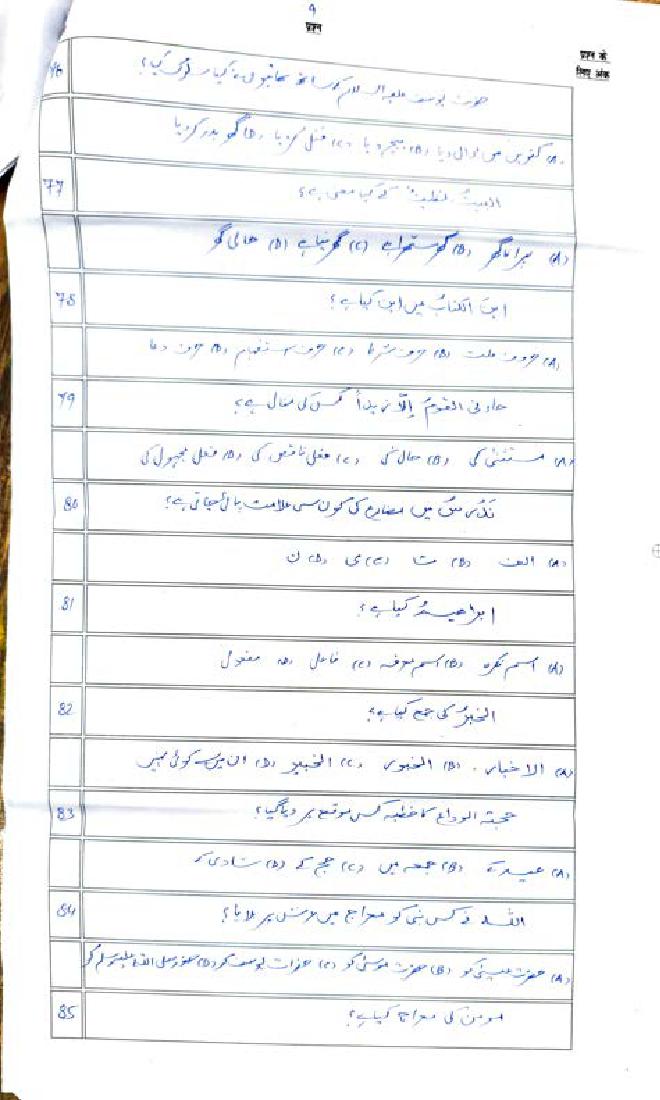 9
प्रश्न
प्रश्न के
लिए अंक
76 حضرت یوسف علیہ السلام کے ساتھ بھائیوں نے کیا سلوک کیا؟
(A) کنویں میں ڈال دیا (B) بیچ دیا (C) قتل کر دیا (D) گھر بدر کر دیا
77 البیتُ نظیفٌ کے کیا معنی ہے؟
(A) پرانا گھر (B) گھر ستھرا ہے (C) گھر نیا ہے (D) خالی گھر
78 این الکتابُ میں این کیا ہے؟
(A) حروف علت (B) حرف شرط (C) حرف استفہام (D) حرف دعا
79 جاءنی القومُ إلّا زیداً کس کی مثال ہے؟
(A) مستثنیٰ کی (B) حال کی (C) فعل ناقص کی (D) فعل مجہول کی
80 میں مضارع کی کون سی علامت پائی جاتی ہے؟
(A) الف (B) تا (C) ی (D) ن
81 ابراھیمُ کیا ہے؟
(A) اسم نکرہ (B) اسم معرفہ (C) فاعل (D) مفعول
82 الخبرُ کی جمع کیا ہے؟
(A) الاخبار (B) الخبور (C) الخبیر (D) ان میں سے کوئی نہیں
83 حجتہ الوداع کا خطبہ کس موقع پر دیا گیا؟
(A) عید کے (B) جمعہ میں (C) حج کے (D) شادی کے
84 اللہ نے کس نبی کو معراج میں عرش پر بلایا؟
(A) حضرت عیسیٰ کو (B) حضرت موسیٰ کو (C) حضرت یوسف کو (D) حضور صلی اللہ علیہ وسلم کو
85 مومن کی معراج کیا ہے؟